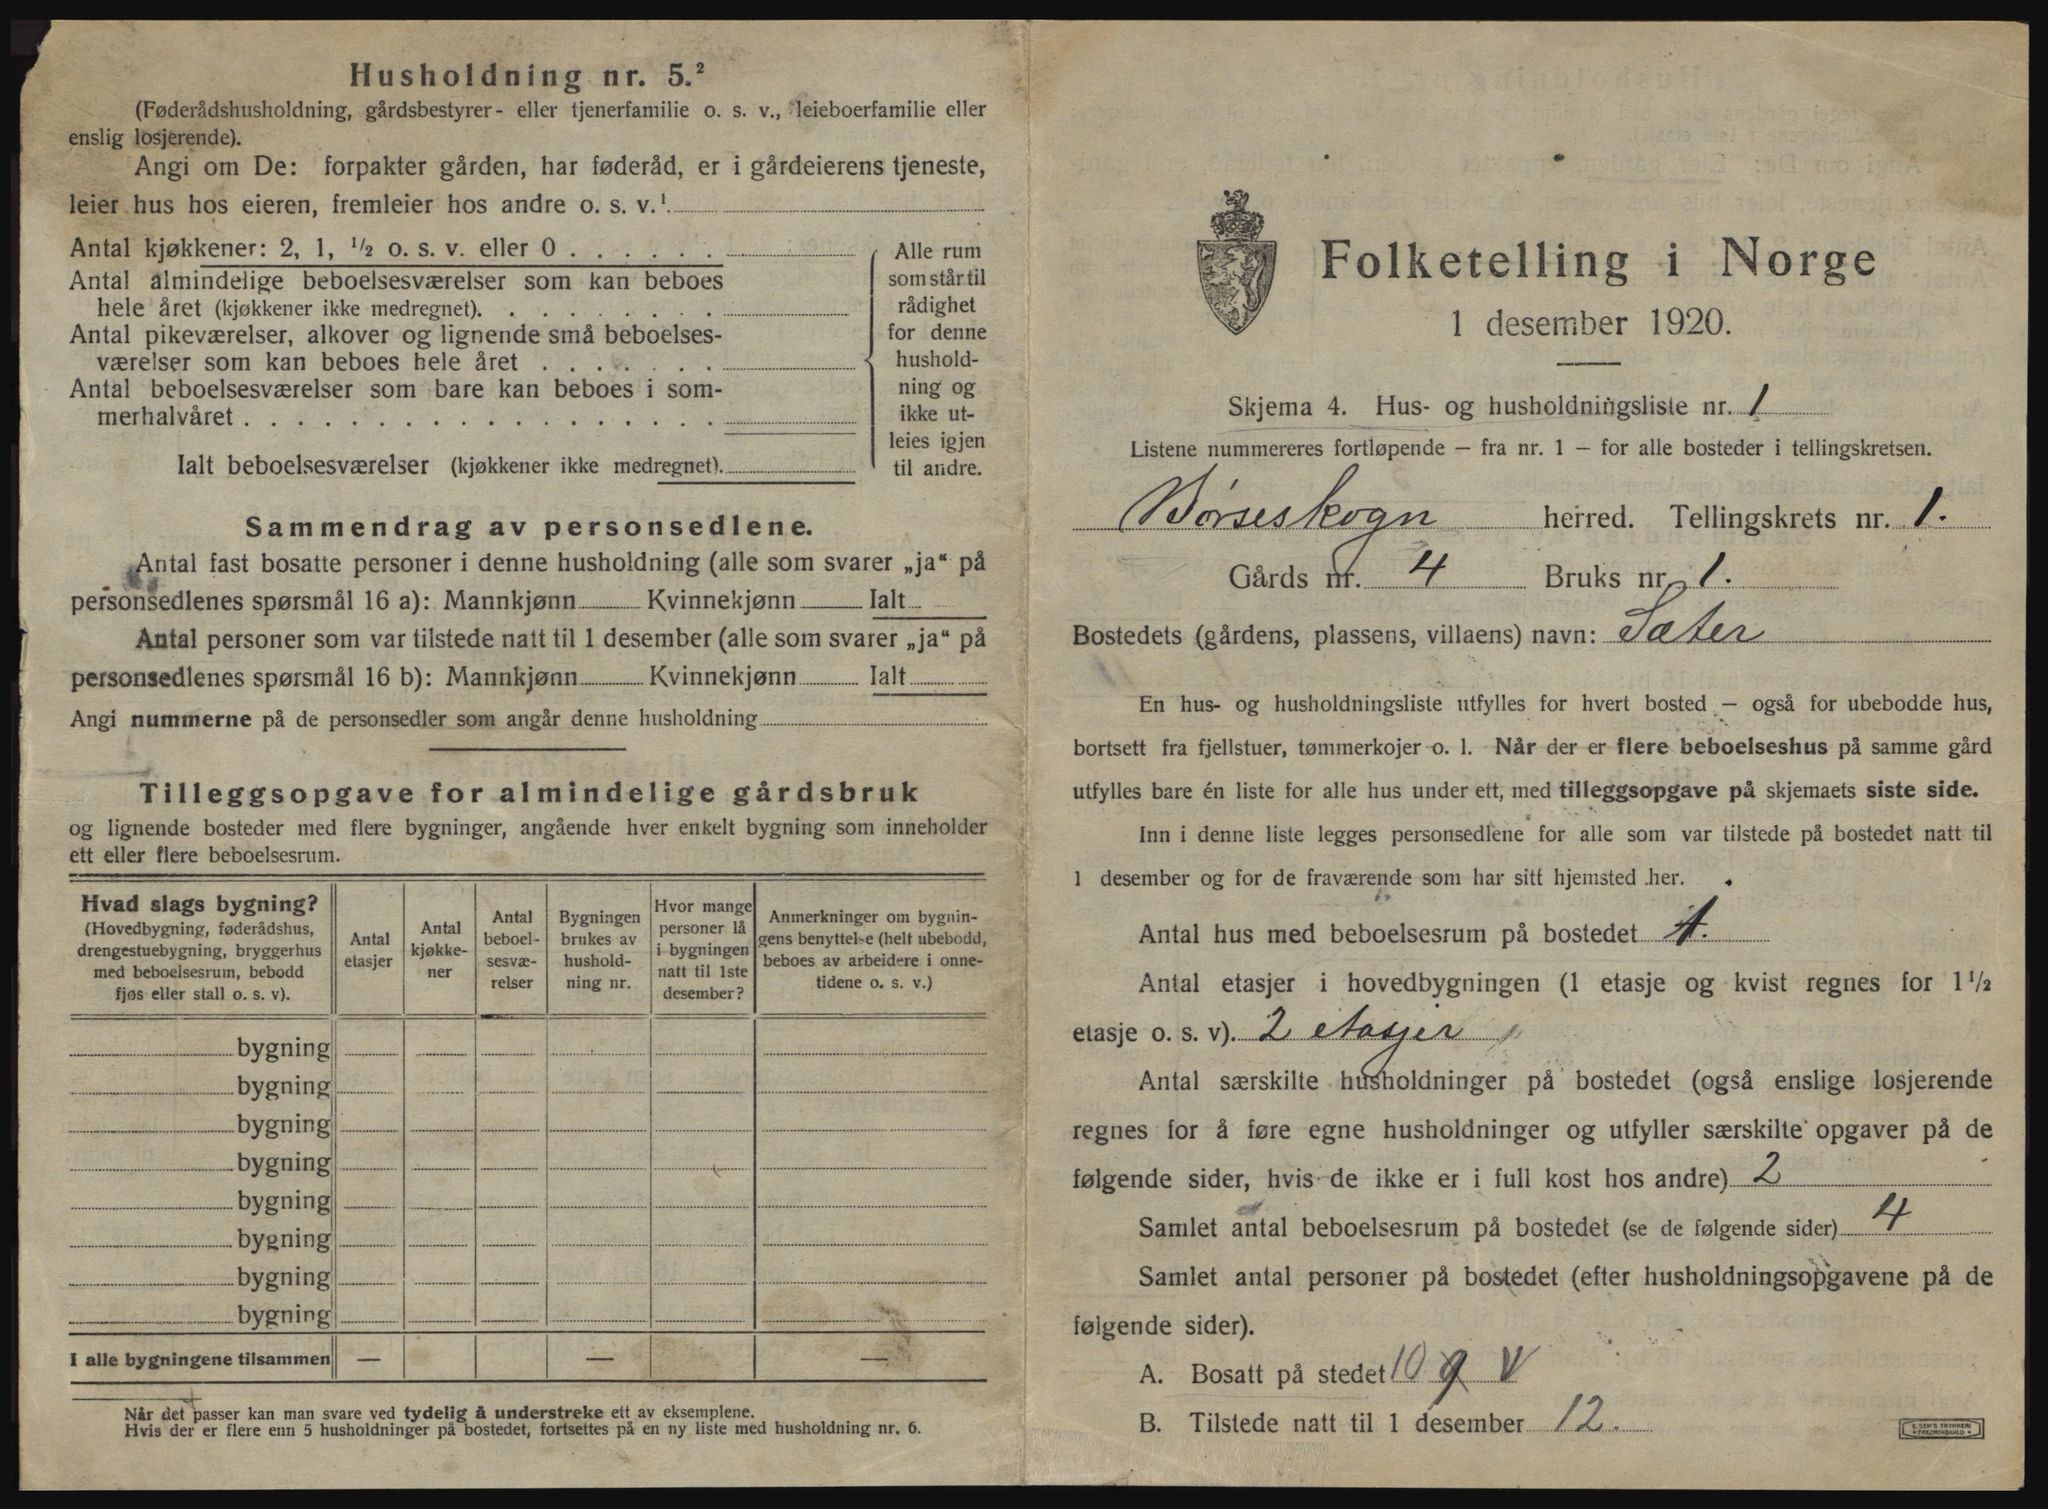 Husholdning nr. 5.²
(Føderådshusholdning, gårdsbestyrer- eller tjenerfamilie o. s. v., leieboerfamilie eller
enslig losjerende).
Angi om De: forpakter gården, har føderåd, er i gårdeierens tjeneste,
leier hus hos eieren, fremleier hos andre o. s. v.¹
Antal kjøkkener: 2, 1, ½ o. s. v. eller 0
Antal almindelige beboelsesværelser som kan beboes
hele året (kjøkkener ikke medregnet).
Antal pikeværelser, alkover og lignende små beboelses-
værelser som kan beboes hele året
Antal beboelsesværelser som bare kan beboes i som-
merhalvåret
Ialt beboelsesværelser (kjøkkener ikke medregnet).
Alle rum
som står til
rådighet
for denne
hushold-
ning og
ikke ut-
leies igjen
til andre.
Sammendrag av personsedlene.
Antal fast bosatte personer i denne husholdning (alle som svarer „ja“ på
personsedlenes spørsmål 16 a): Mannkjønn Kvinnekjønn Ialt
Antal personer som var tilstede natt til 1 desember (alle som svarer „ja“ på
personsedlenes spørsmål 16 b): Mannkjønn Kvinnekjønn Ialt
Angi nummerne på de personsedler som angår denne husholdning
Tilleggsopgave for almindelige gårdsbruk
og lignende bosteder med flere bygninger, angående hver enkelt bygning som inneholder
ett eller flere beboelsesrum.
Hvad slags bygning?
(Hovedbygning, føderådshus,
drengestuebygning, bryggerhus
med beboelsesrum, bebodd
fjøs eller stall o. s. v).
Antal
etasjer
Antal
kjøkke-
ner
Antal
beboel-
sesvæ-
relser
Bygningen
brukes av
hushold-
ning nr.
Hvor mange
personer lå
i bygningen
natt til 1ste
desember?
Anmerkninger om bygnin-
gens benyttelse (helt ubebodd,
beboes av arbeidere i onne-
tidene o. s. v.)
bygning
bygning
bygning
bygning
bygning
bygning
bygning
bygning
I alle bygningene tilsammen — — —
Når det passer kan man svare ved tydelig å understreke ett av eksemplene.
Hvis der er flere enn 5 husholdninger på bostedet, fortsettes på en ny liste med husholdning nr. 6.
Folketelling i Norge
1 desember 1920.
Skjema 4. Hus- og husholdningsliste nr. 1
Listene nummereres fortløpende — fra nr. 1 — for alle bosteder i tellingskretsen.
Børseskogn herred. Tellingskrets nr. 1.
Gårds nr. 4 Bruks nr. 1.
Bostedets (gårdens, plassens, villaens) navn: Sæter
En hus- og husholdningsliste utfylles for hvert bosted — også for ubebodde hus,
bortsett fra fjellstuer, tømmerkojer o. l. Når der er flere beboelseshus på samme gård
utfylles bare én liste for alle hus under ett, med tilleggsopgave på skjemaets siste side.
Inn i denne liste legges personsedlene for alle som var tilstede på bostedet natt til
1 desember og for de fraværende som har sitt hjemsted her.
Antal hus med beboelsesrum på bostedet 1.
Antal etasjer i hovedbygningen (1 etasje og kvist regnes for 1½
etasje o. s. v). 2 etasjer
Antal særskilte husholdninger på bostedet (også enslige losjerende
regnes for å føre egne husholdninger og utfyller særskilte opgaver på de
følgende sider, hvis de ikke er i full kost hos andre) 2
Samlet antal beboelsesrum på bostedet (se de følgende sider) 4
Samlet antal personer på bostedet (efter husholdningsopgavene på de
følgende sider).
A. Bosatt på stedet 10 9 V
B. Tilstede natt til 1 desember 12.